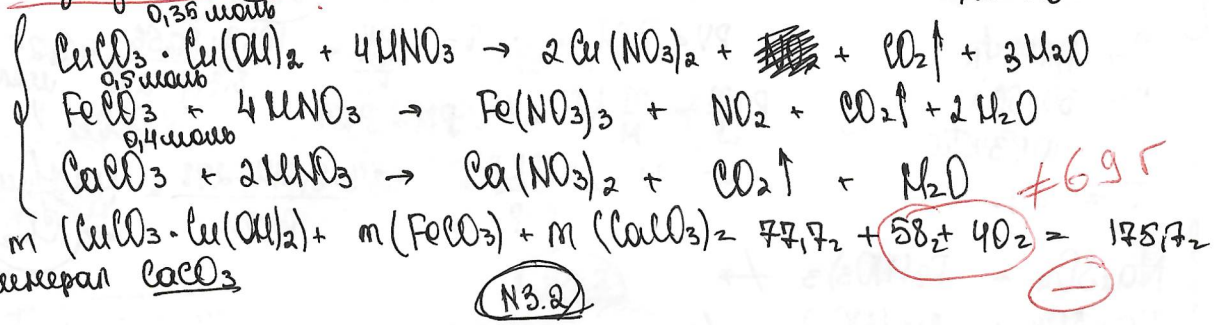 0,35 моль
CuCO3 · Cu(OH)2 + 4HNO3 → 2Cu(NO3)2 + + CO2↑ + 3H2O
0,5 моль
FeCO3 + 4HNO3 → Fe(NO3)3 + NO2 + CO2↑ + 2H2O
0,4 моль
CaCO3 + 2HNO3 → Ca(NO3)2 + CO2↑ + H2O ≠69г
m (CuCO3 · Cu(OH)2) + m(FeCO3) + m (CaCO3) = 77,7г + 58г + 40г = 175,7г
минерал CaCO3 —
N3.2